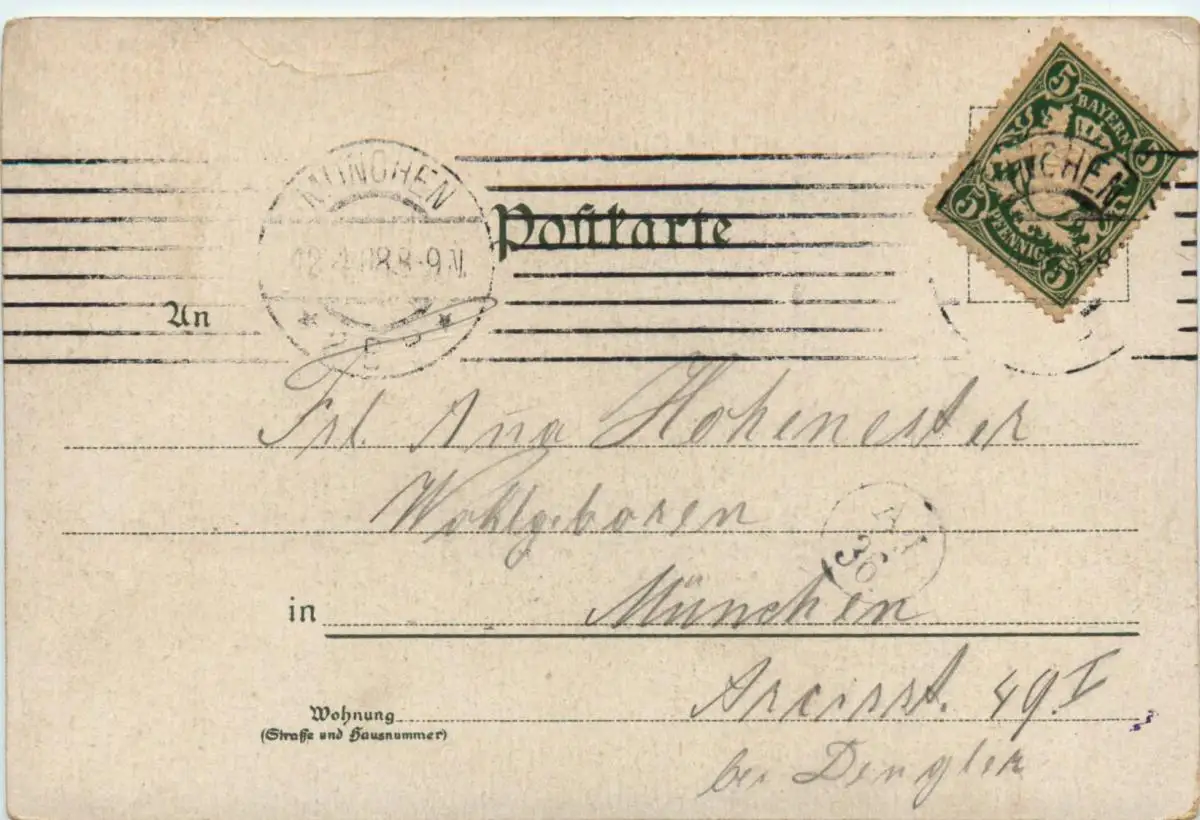 5 BAYERN 5
5 PFENNIG 5
MÜNCHEN
12.4.08.8-9 N.
Postkarte
CHEN
An
Frl. Anna Hohenester
Wohlgeboren
36
in München
Arcisst. 49 I
Wohnung
(Straße und Hausnummer)
bei Dengler